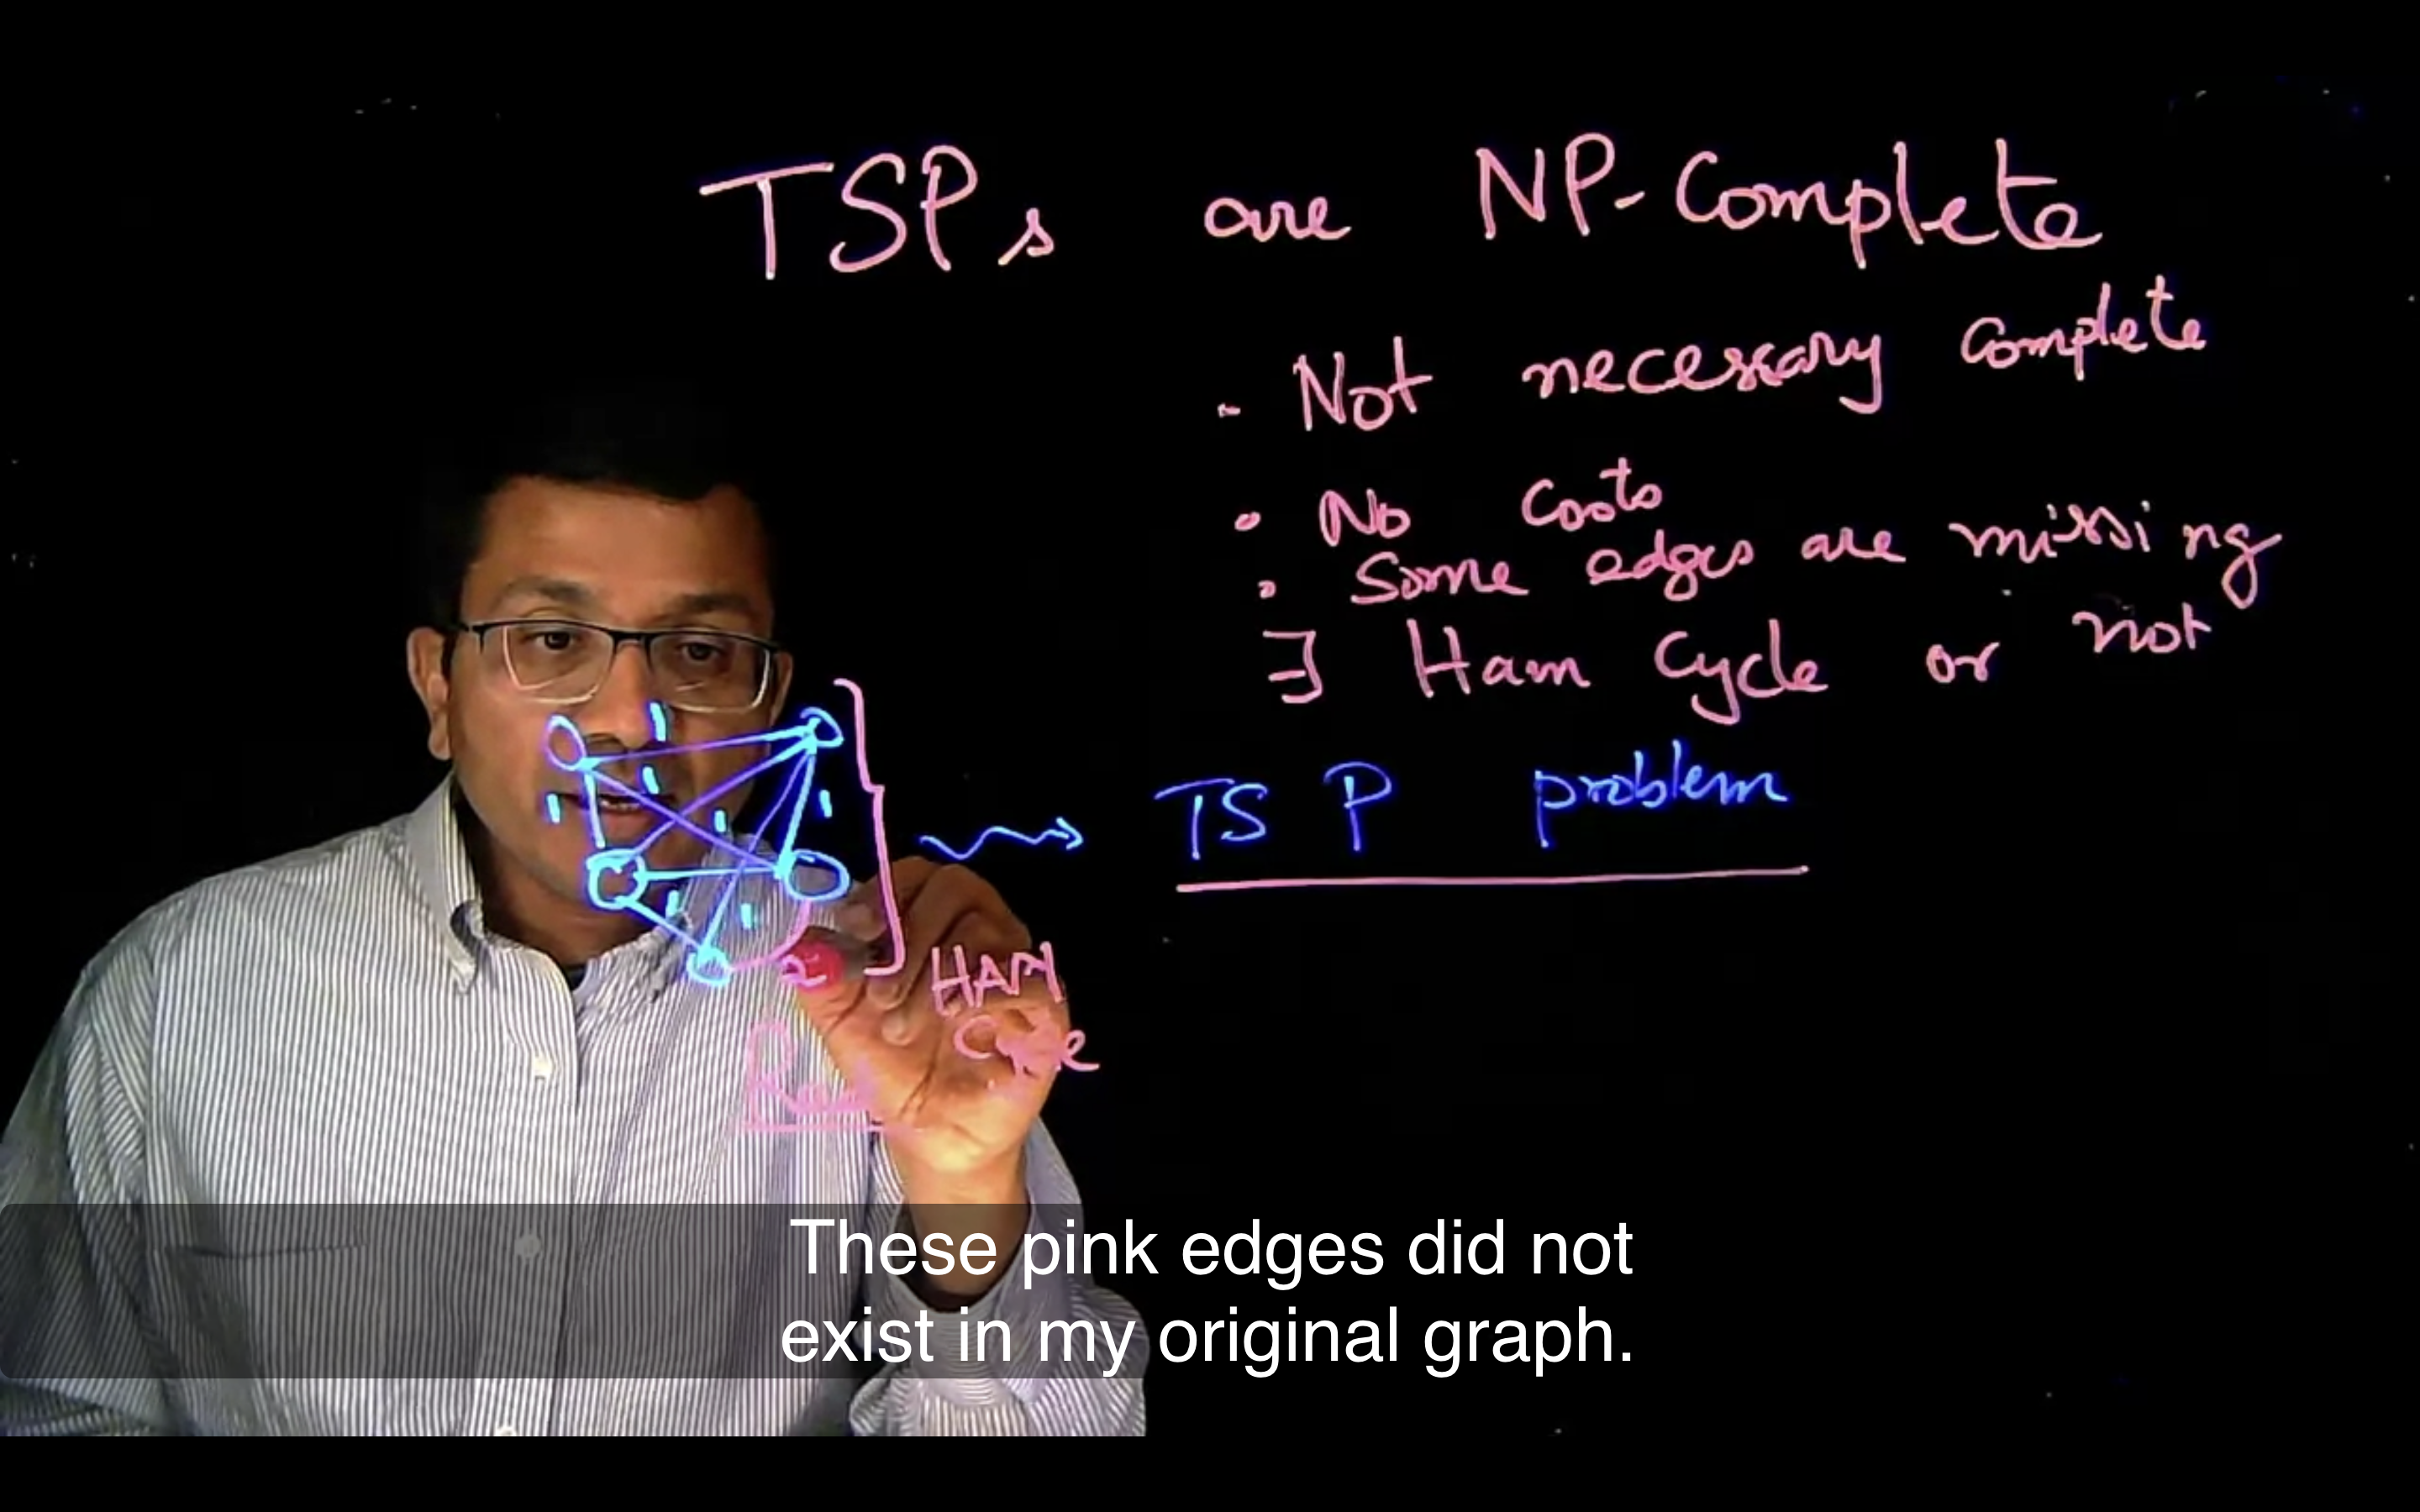 TSPs are NP-Complete
- Not necessary complete
• No Costs
• Some edges are missing
∃ Ham Cycle or not
TSP problem
1
1
1
1
1
1
1
2
HAM
Cycle
These pink edges did not
exist in my original graph.